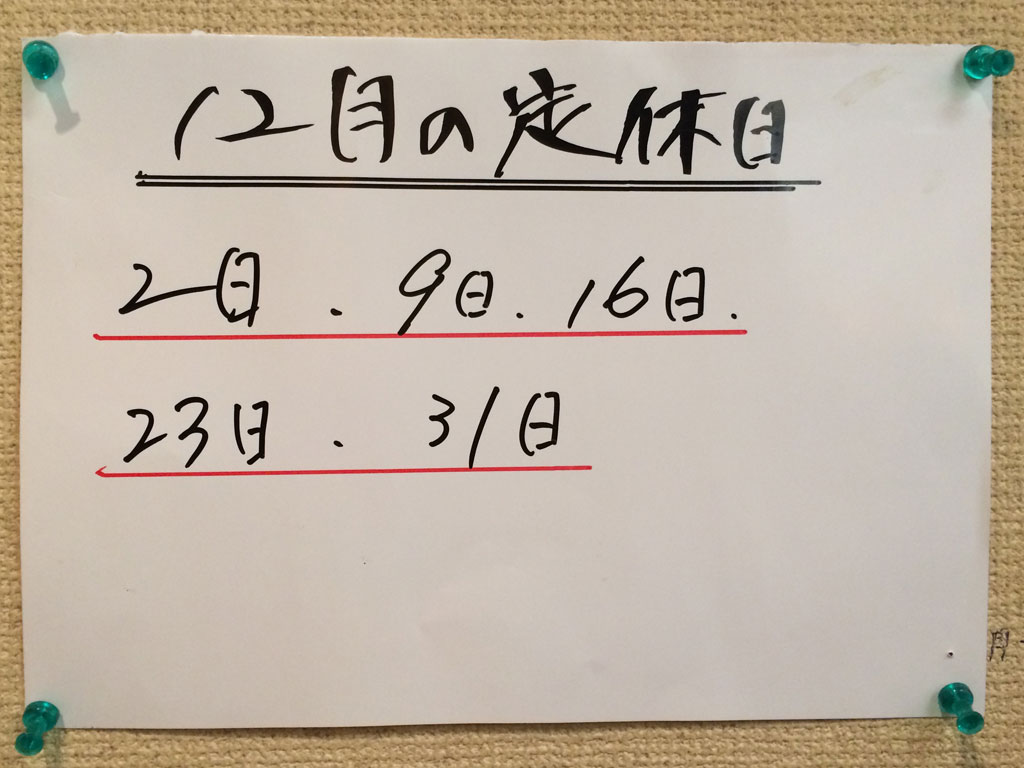 12月の定休日
2日.9日.16日.
23日.31日